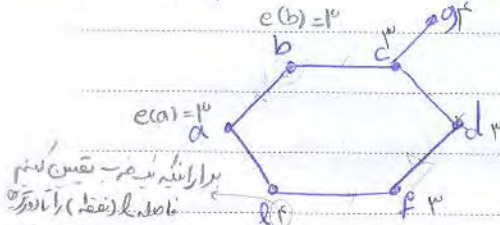 e(b)=۳
g ۴
b
c ۳
e(a)=۳
a
d ۳
برای اینکه
تعیین کنیم
فاصله e (نقطه) را تا دورترین
e ۴
f ۳